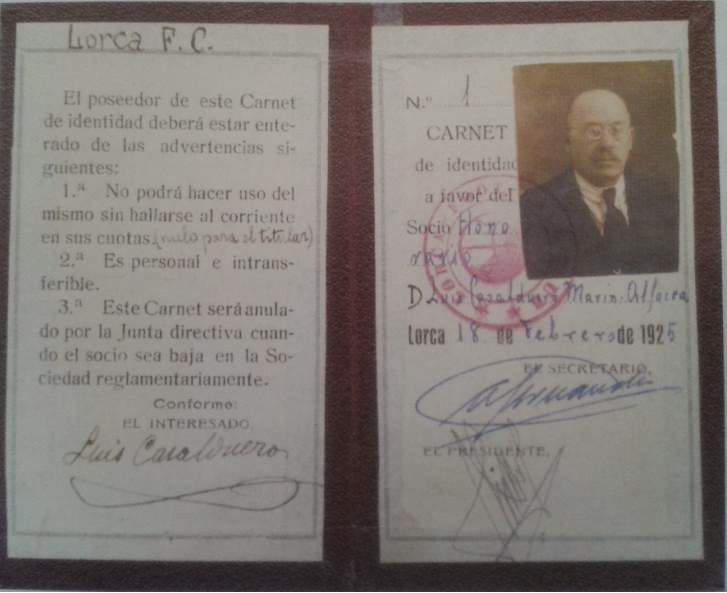 Lorca F. C.
El poseedor de este Carnet
de identidad deberá estar ente-
rado de las advertencias si-
guientes:
1.ª No podrá hacer uso del
mismo sin hallarse al corriente
en sus cuotas, (nulo para el titular)
2.ª Es personal e intrans-
ferible.
3.ª Este Carnet será anula-
do por la Junta directiva cuan-
do el socio sea baja en la So-
ciedad reglamentariamente.
Conforme:
EL INTERESADO,
Luis Casalduero
N.º 1
CARNET
de identidad
a favor del
Socio Hono
rario
D Luis Casalduero Marin-Alfocea
Lorca 18 de Febrero de 1925
EL SECRETARIO,
EL PRESIDENTE,